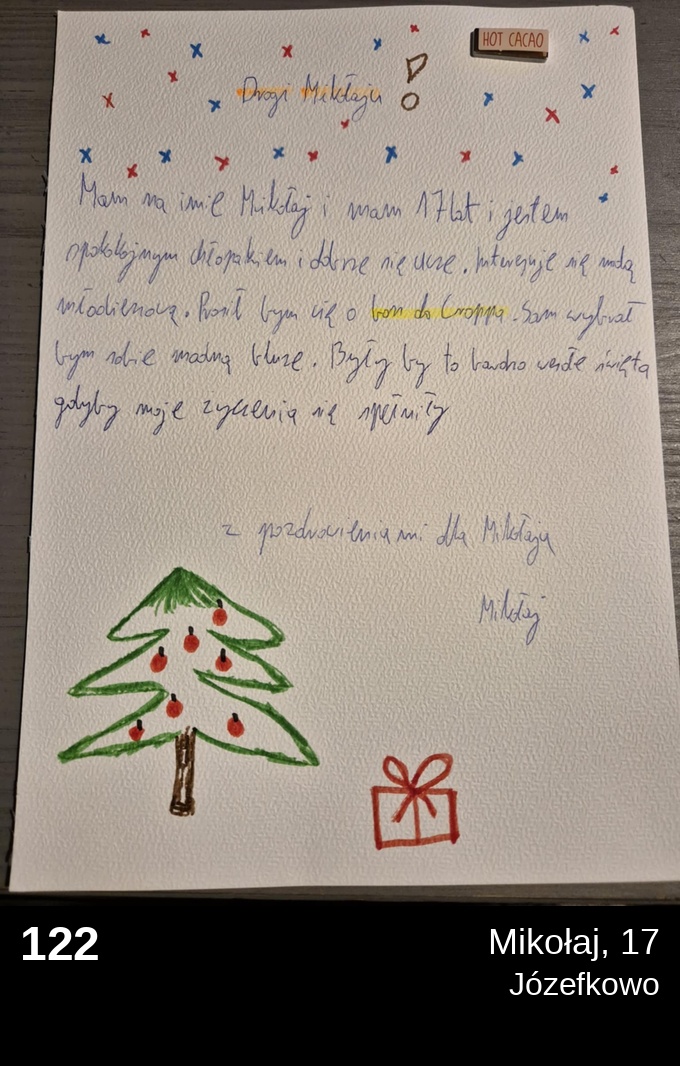 HOT CACAO
Drogi Mikołaju!
Mam na imię Mikołaj i mam 17 lat i jestem
spokojnym chłopakiem i dobrze się uczę. Interesuje się modą
młodzieżową. Prosił bym cię o bon do Croppa. Sam wybrał
bym sobie modną bluzę. Były by to bardzo wesłe święta
gdyby moje życzenia się spełniły
z pozdrowieniami dla Mikołaja
Mikołaj
122
Mikołaj, 17
Józefkowo